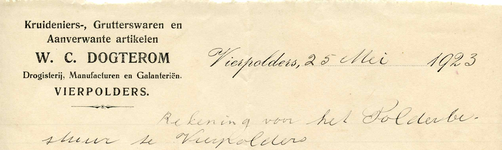 Kruideniers-, Grutterswaren en
Aanverwante artikelen
W. C. DOGTEROM
Drogisterij, Manufacturen en Galanteriën.
VIERPOLDERS.
Vierpolders, 25 Mei 1923
Rekening voor het Polderbe-
stuur te Vierpolders